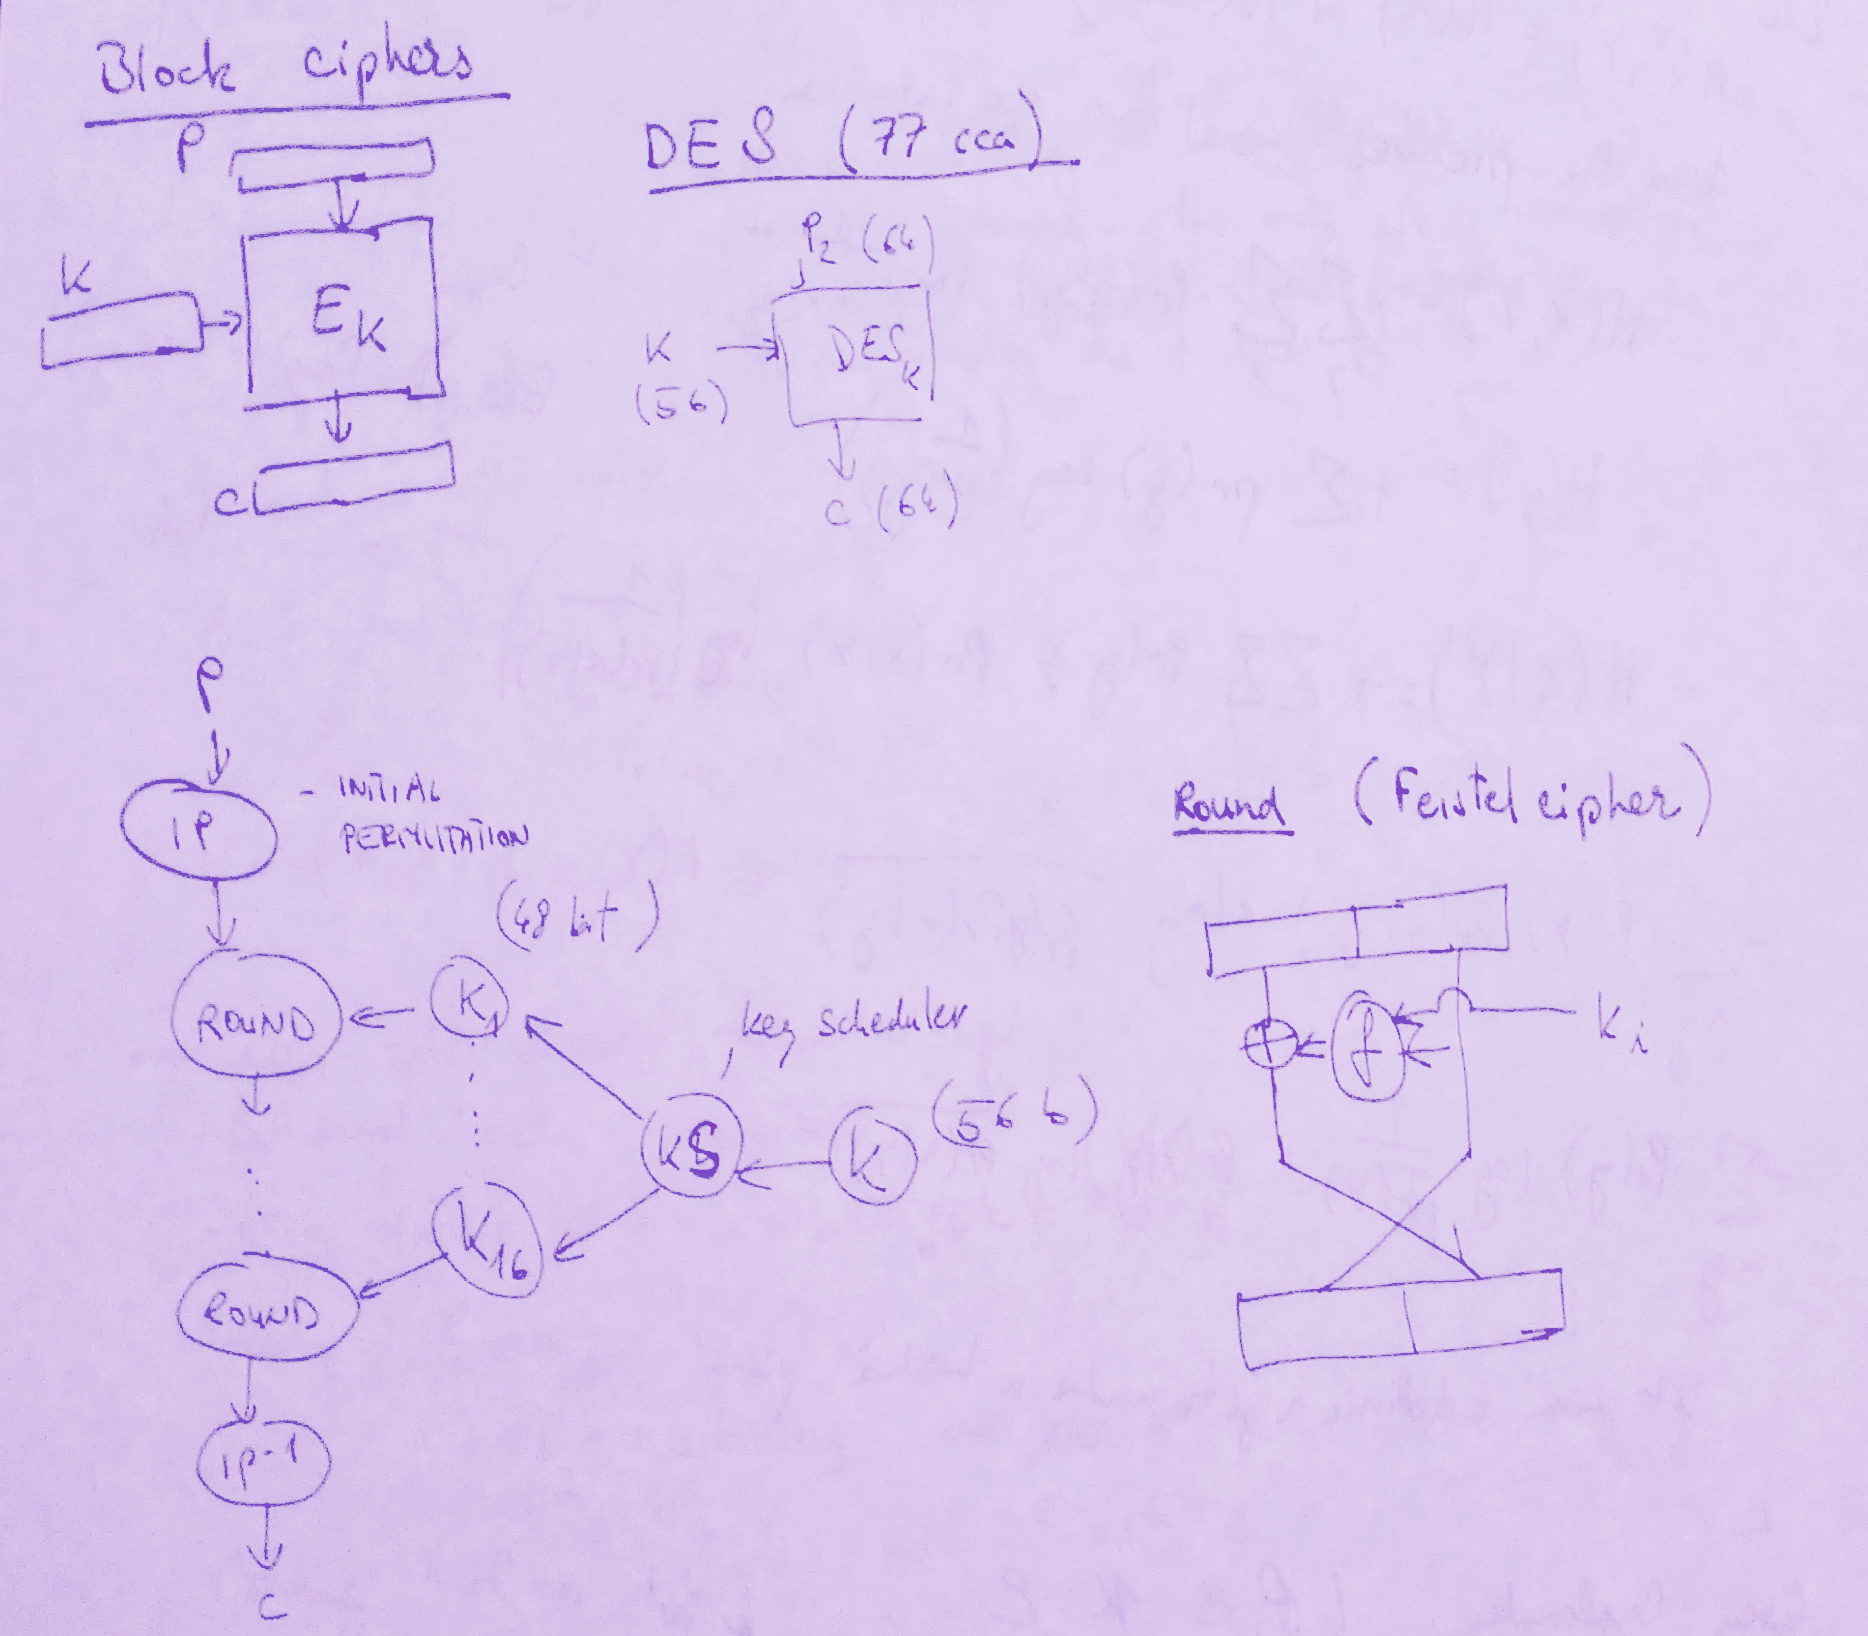 Block ciphers
P
K
E_K
C
DES (77 cca)
P_2 (64)
K
(56)
DES_K
C (64)
P
IP
- INITIAL
PERMUTATION
(48 bit)
ROUND
K_1
key scheduler
KS
K
(56 b)
K_16
ROUND
IP-1
C
Round (Feistel cipher)
f
K_i